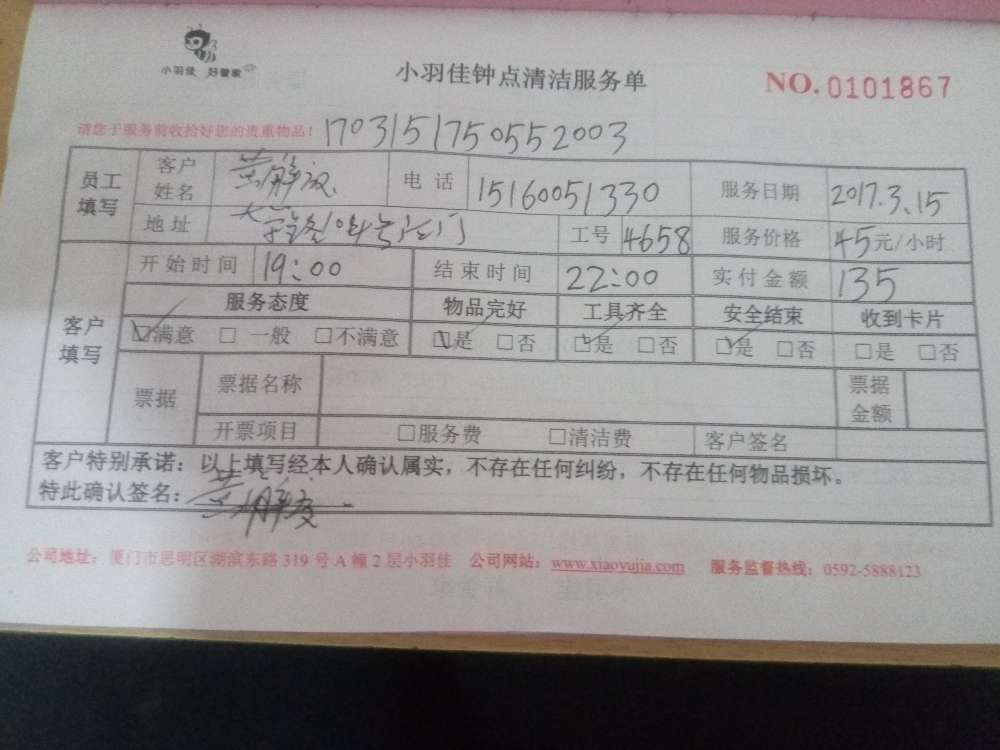 小羽佳 好管家
小羽佳钟点清洁服务单
NO.0101867
请您于服务前收拾好您的贵重物品!
1703151750552003
员工填写 客户姓名 黄解放 电话 15160051330 服务日期 2017.3.15
地址 大学路 号 工号 4658 服务价格 45元/小时
客户填写 开始时间 19:00 结束时间 22:00 实付金额 135
服务态度 物品完好 工具齐全 安全结束 收到卡片
☑满意 □一般 □不满意 ☑是 □否 ☑是 □否 ☑是 □否 □是 □否
票据 票据名称 票据金额
开票项目 □服务费 □清洁费 客户签名
客户特别承诺：以上填写经本人确认属实，不存在任何纠纷，不存在任何物品损坏。
特此确认签名：黄解放
公司地址：厦门市思明区湖滨东路 319 号 A 幢 2 层小羽佳 公司网站：www.xiaoyujia.com 服务监督热线：0592-5888123